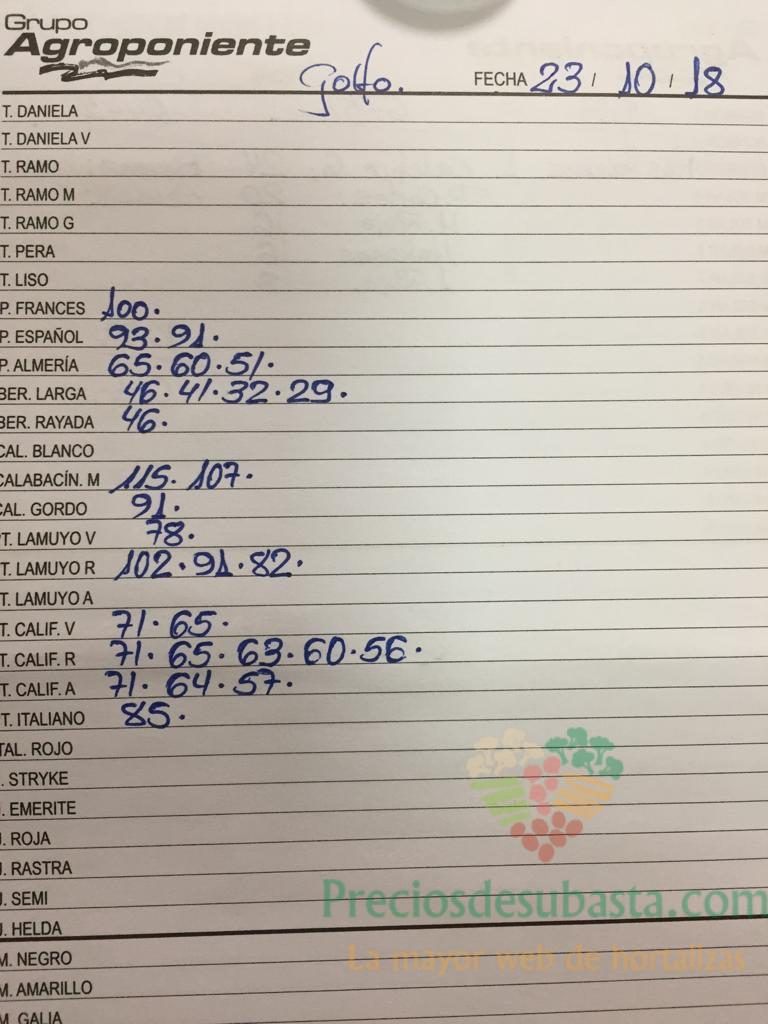 Grupo
Agroponiente
Golfo. FECHA 23 / 10 / 18
T. DANIELA
T. DANIELA V
T. RAMO
T. RAMO M
T. RAMO G
T. PERA
T. LISO
P. FRANCES 100.
P. ESPAÑOL 93. 91.
P. ALMERÍA 65. 60. 51.
BER. LARGA 46. 41. 32. 29.
BER. RAYADA 46.
CAL. BLANCO
CALABACÍN. M 115. 107.
CAL. GORDO 91.
T. LAMUYO V 78.
T. LAMUYO R 102. 91. 82.
T. LAMUYO A
T. CALIF. V 71. 65.
T. CALIF. R 71. 65. 63. 60. 56.
T. CALIF. A 71. 64. 57.
T. ITALIANO 85.
TAL. ROJO
. STRYKE
. EMERITE
J. ROJA
J. RASTRA
J. SEMI
J. HELDA
M. NEGRO
M. AMARILLO
M. GALIA
Preciosdesubasta.com
La mayor web de hortalizas